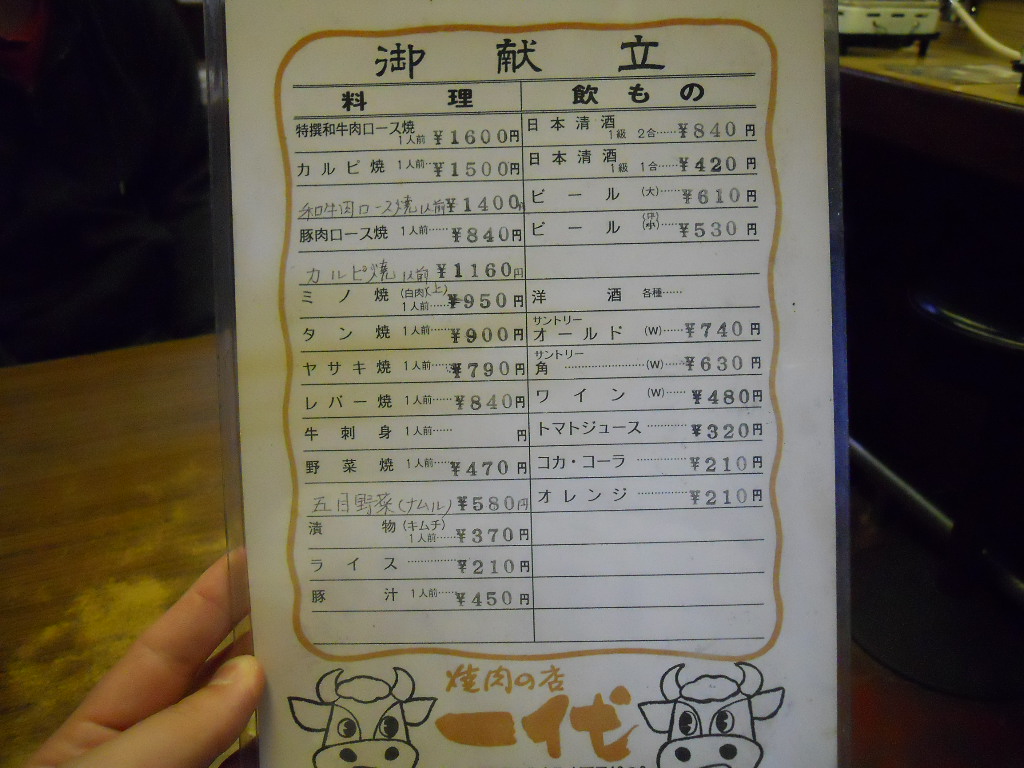 御献立
料理
飲もの
特撰和牛肉ロース焼 1人前 ¥1600円
カルビ焼 1人前‥ ¥1500円
和牛肉ロース焼 1人前 ¥1400円
豚肉ロース焼 1人前…… ¥840円
カルビ焼 1人前 ¥1160円
ミノ焼 (白肉)(上) 1人前…… ¥950円
タン焼 1人前…… ¥900円
ヤサキ焼 1人前…… ¥790円
レバー焼 1人前…… ¥840円
牛刺身 1人前…… 円
野菜焼 1人前…… ¥470円
五目野菜(ナムル) ¥580円
漬物(キムチ) 1人前…… ¥370円
ライス ………… ¥210円
豚汁 1人前…… ¥450円
日本清酒 1級 2合…… ¥840円
日本清酒 1級 1合…… ¥420円
ビール (大) ¥610円
ビール (中) ¥530円
洋酒 各種……
サントリー
オールド (W)…… ¥740円
サントリー
角 ………………(W)…… ¥630円
ワイン (W)…… ¥480円
トマトジュース ………… ¥320円
コカ・コーラ ………… ¥210円
オレンジ ………… ¥210円
焼肉の店
一代